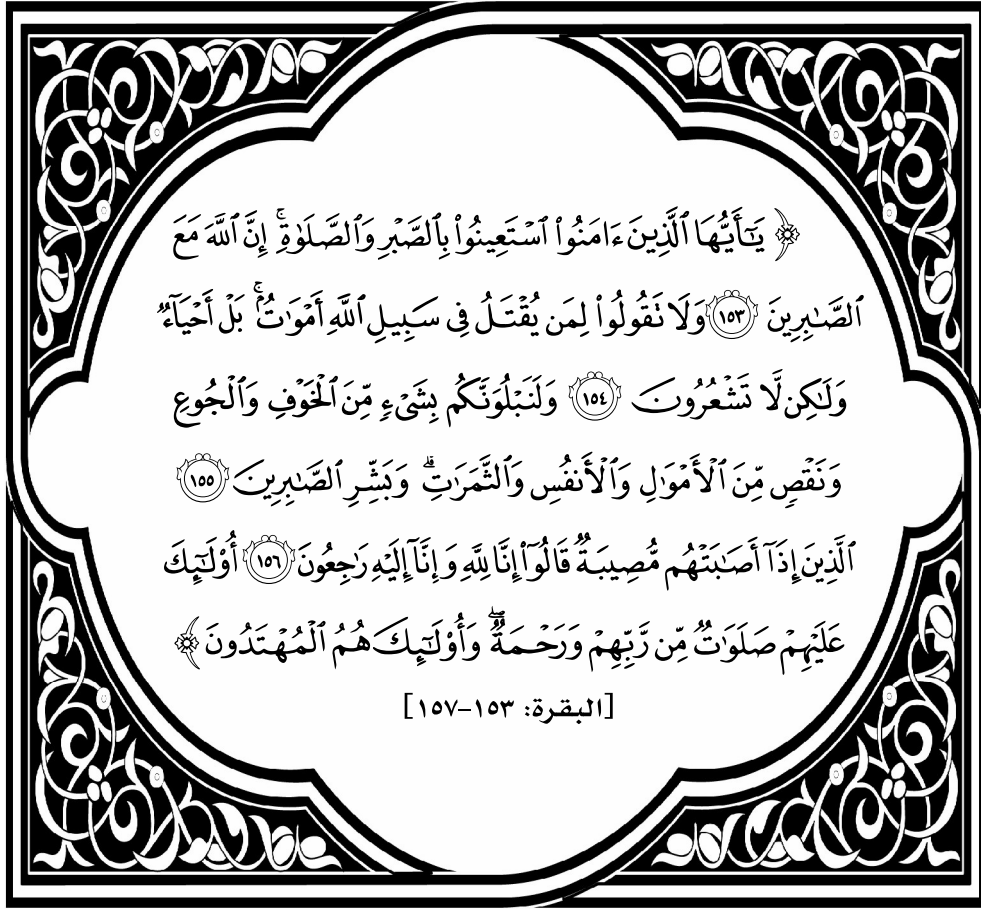 ﴿ يَٰٓأَيُّهَا ٱلَّذِينَ ءَامَنُواْ ٱسۡتَعِينُواْ بِٱلصَّبۡرِ وَٱلصَّلَوٰةِۚ إِنَّ ٱللَّهَ مَعَ
ٱلصَّٰبِرِينَ ١٥٣ وَلَا تَقُولُواْ لِمَن يُقۡتَلُ فِي سَبِيلِ ٱللَّهِ أَمۡوَٰتُۢۚ بَلۡ أَحۡيَآءٞ
وَلَٰكِن لَّا تَشۡعُرُونَ ١٥٤ وَلَنَبۡلُوَنَّكُم بِشَيۡءٖ مِّنَ ٱلۡخَوۡفِ وَٱلۡجُوعِ
وَنَقۡصٖ مِّنَ ٱلۡأَمۡوَٰلِ وَٱلۡأَنفُسِ وَٱلثَّمَرَٰتِۗ وَبَشِّرِ ٱلصَّٰبِرِينَ ١٥٥
ٱلَّذِينَ إِذَآ أَصَٰبَتۡهُم مُّصِيبَةٞ قَالُوٓاْ إِنَّا لِلَّهِ وَإِنَّآ إِلَيۡهِ رَٰجِعُونَ ١٥٦ أُوْلَٰٓئِكَ
عَلَيۡهِمۡ صَلَوَٰتٞ مِّن رَّبِّهِمۡ وَرَحۡمَةٞۖ وَأُوْلَٰٓئِكَ هُمُ ٱلۡمُهۡتَدُونَ ﴾
[البقرة: ١٥٣–١٥٧]